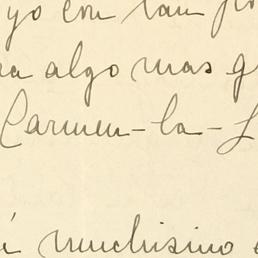 yo con tan po
a algo mas g
Carmen-la-
muchisimo